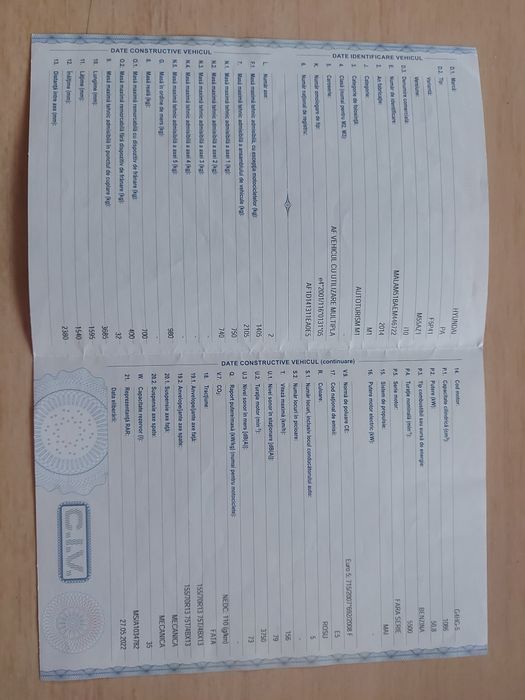 DATE IDENTIFICARE VEHICUL
D.1. Marcă: HYUNDAI
D.2. Tip: PA
Variantă: F5P41
Versiune: M55AZ1
D.3. Denumire comercială: I10
E. Număr de identificare:
2. An fabricație: 2014
J. Categorie: M1
3. Categorie de folosință: AUTOTURISM M1
4. Clasă (numai pentru M2, M3): -
5. Caroserie: AF VEHICUL CU UTILIZARE MULTIPLA
K. Număr omologare de tip: e4*2001/116*0131*05
6. Număr național de registru: AF1D141311EA0E5
DATE CONSTRUCTIVE VEHICUL
L. Număr axe: 2
F.1. Masă maximă tehnic admisibilă, cu excepția motocicletelor (kg): 1405
7. Masă maximă tehnic admisibilă a ansamblului de vehicule (kg): 2105
N.1. Masă maximă tehnic admisibilă a axei 1 (kg): 750
N.2. Masă maximă tehnic admisibilă a axei 2 (kg): 740
N.3. Masă maximă tehnic admisibilă a axei 3 (kg):
N.4. Masă maximă tehnic admisibilă a axei 4 (kg):
N.5. Masă maximă tehnic admisibilă a axei 5 (kg):
G. Masă în ordine de mers (kg): 980
8. Masă reală (kg):
O.1. Masă maximă remorcabilă cu dispozitiv de frânare (kg): 700
O.2. Masă maximă remorcabilă fără dispozitiv de frânare (kg): 400
9. Masă maximă tehnic admisibilă în punctul de cuplare (kg): 32
10. Lungime (mm): 3685
11. Lățime (mm): 1595
12. Înălțime (mm): 1540
13. Distanță între axe (mm): 2380
DATE CONSTRUCTIVE VEHICUL (continuare)
14. Cod motor: G4HG-5
P.1. Capacitate cilindrică (cm³): 1086
P.2. Putere (kW): 50,8
P.3. Tip combustibil sau sursă de energie: BENZINA
P.4. Turație nominală (min⁻¹): 5500
P.5. Serie motor: FARA SERIE
15. Sistem de propulsie: MAI
16. Putere motor electric (kW): -
V.9. Normă de poluare CE: Euro 5; 715/2007*692/2008 F
17. Cod național de emisii: E5
R. Culoare: ROSU
S.1. Număr locuri, inclusiv locul conducătorului auto: 5
S.2. Număr locuri în picioare:
T. Viteză maximă (km/h): 156
U.1. Nivel sonor în staționare [dB(A)]: 79
U.2. Turație motor (min⁻¹): 3750
U.3. Nivel sonor în mers [dB(A)]: 73
Q. Raport putere/masă (kW/kg) (numai pentru motociclete):
V.7. CO₂: NEDC: 110 (g/km)
18. Tracțiune: FATA
19.1. Anvelope/jante axe față: 155/70R13 75T/4BX13
19.2. Anvelope/jante axe spate: 155/70R13 75T/4BX13
20.1. Suspensie axe față: MECANICA
20.2. Suspensie axe spate: MECANICA
W. Capacitate rezervor (l): 35
21. Reprezentanță RAR: MS/A1034782
Data eliberării: 27.05.2022
C.I.V.